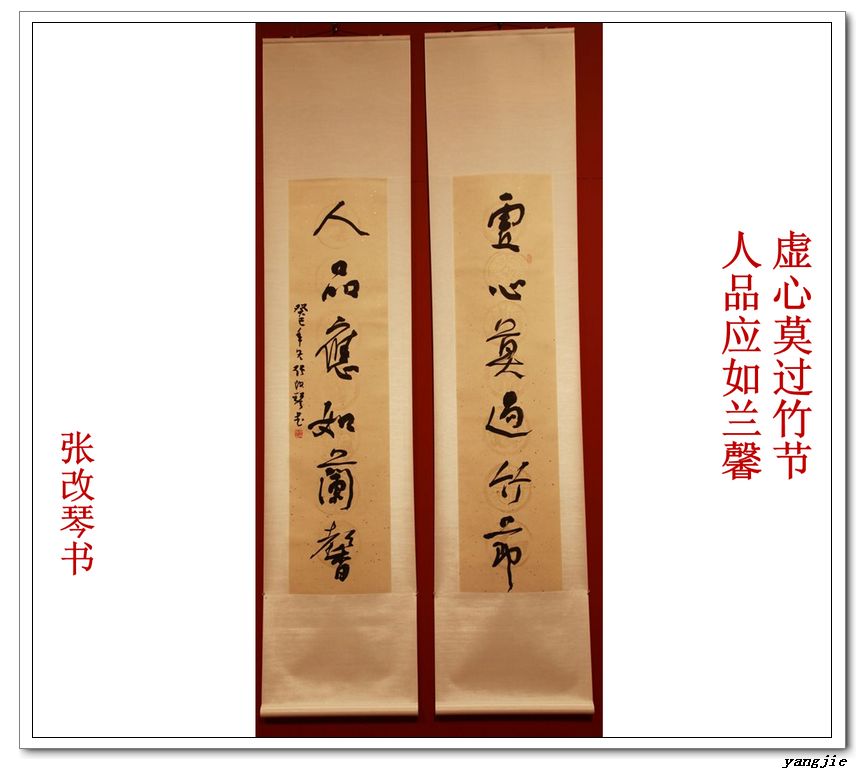 虚心莫过竹节
人品应如兰馨
虛心莫過竹節
人品應如蘭馨
癸巳年冬張改琴書
张改琴书
yangjie